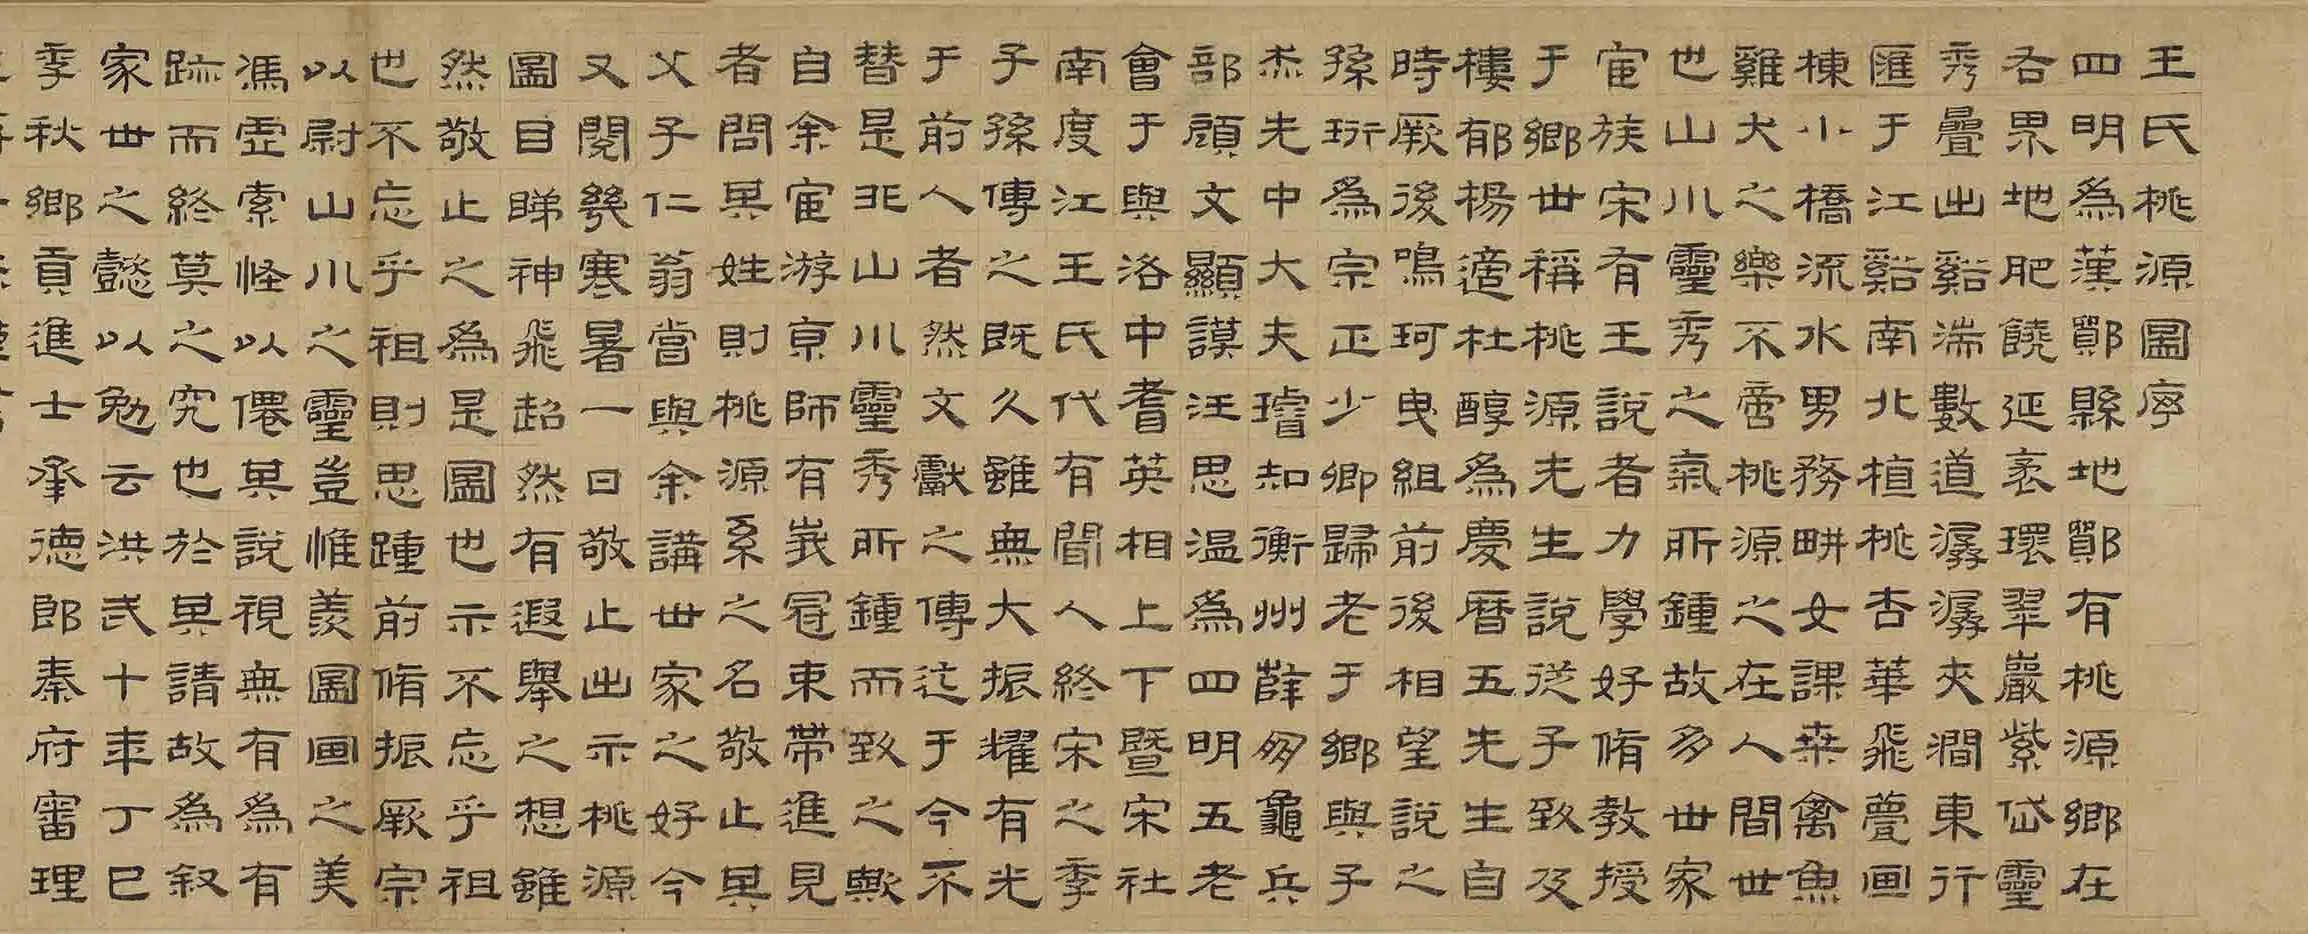 王氏桃源圖序
四明為漢鄮縣地鄮有桃源鄉在
右界地肥饒延袤環翠巖紫岱靈
秀疊出谿湍數道潺潺夾澗東行
匯于江谿南北植桃杏華飛甍画
棟小橋流水男務畊女課桒禽魚
雞犬之樂不啻桃源之在人間世
也山川靈秀之氣所鍾故多世家
宦族宋有王說者力學好脩教授
于鄉世稱桃源先生說從子致及
樓郁楊適杜醇為慶曆五先生自
時厥後鳴珂曳組前後相望說之
孫珩為宗正少卿歸老于鄉與子
先中大夫璿知衡州薛朋龜兵
部顧文顯謨汪思温為四明五老
會于與洛中耆英相上下暨宋社
南度江王氏代有聞人終宋之季
子孫傳之既久雖無大振耀有光
于前人者然文獻之傳迄于今不
替是非山川靈秀所鍾而致之歟
自余宦游京師有峩冠束帶進見
者問其姓則桃源系之名敬止其
父子仁翁嘗與余講世家之好今
又閱幾寒暑一日敬止出示桃源
圖目睇神飛超然有遐舉之想雖
然敬止之為是圖也示不忘乎祖
也不忘乎祖則思踵前脩振厥宗
以尉山川之靈豈惟羨圖画之美
馮虛索怪以僊其說視無有為有
跡而終莫之究也於其請故為叙
家世之懿以勉云洪武十年丁巳
季秋鄉貢進士承德郎秦府審理